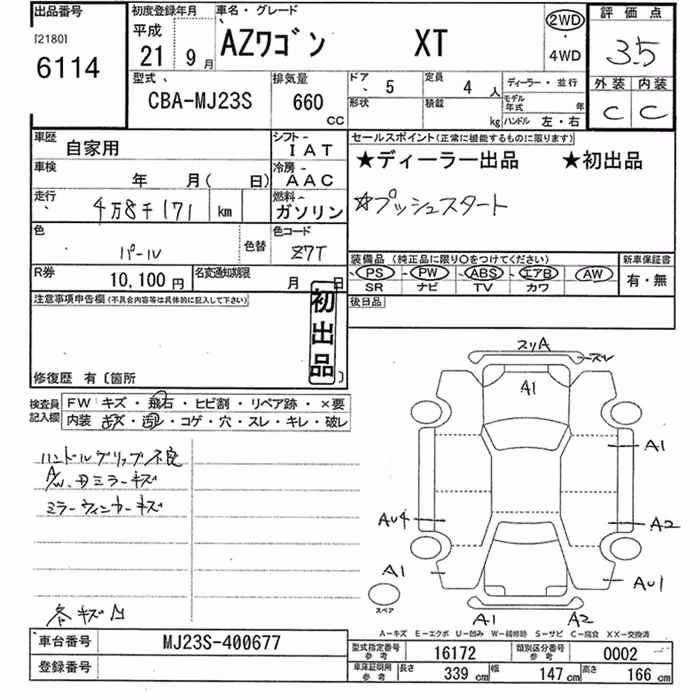 出品番号
[2180]
6114
初度登録年月
平成
21 9 月
車名・グレード
AZワゴン XT
2WD
・
4WD
評価点
3.5
外装 内装
C C
型式
CBA-MJ23S
排気量
660 CC
ドア 5
定員 4 人
形状
積載 kg
ディーラー・並行
モデル年式 年
ハンドル 左・右
車歴 自家用
シフト
IAT
車検 年 月( 日)
冷房
AAC
走行 4万8千171 km
燃料
ガソリン
色 パール
色替
色コード
Z7T
R券 10,100円
名変通知期限 月 日
セールスポイント(正常に機能するものに限ります)
★ディーラー出品 ★初出品
☆プッシュスタート
装備品(純正品に限り〇をつけてください)
PS PW ABS エアB AW
SR ナビ TV カワ
新車保証書
有・無
後日品
注意事項申告欄(不具合内容等は具体的に記入して下さい)
初出品
修復歴 有〔箇所 〕
検査員記入欄
FW キズ・飛石・ヒビ割・リペア跡・×要
内装 キズ・汚レ・コゲ・穴・スレ・キレ・破レ
ハンドルグリップ不良
A/W、Dミラーキズ
ミラーウィンカーキズ
各キズ凹
スリA
スレ
A1
A1
AU4
A2
A1
AU1
スペア
A1 A2
A-キズ E-エクボ U-凹み W-補修跡 S-サビ C-腐食 XX-交換済
車台番号 MJ23S-400677
登録番号
型式指定番号 参考 16172
類別区分番号 参考 0002
車庫証明用 参考 長さ 339 cm 幅 147 cm 高さ 166 cm